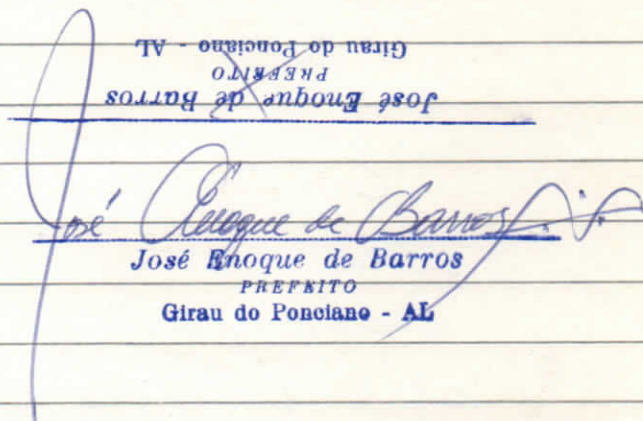 José Enoque de Barros
PREFEITO
Girau do Ponciano - AL
José Enoque de Barros
José Enoque de Barros
PREFEITO
Girau do Ponciano - AL